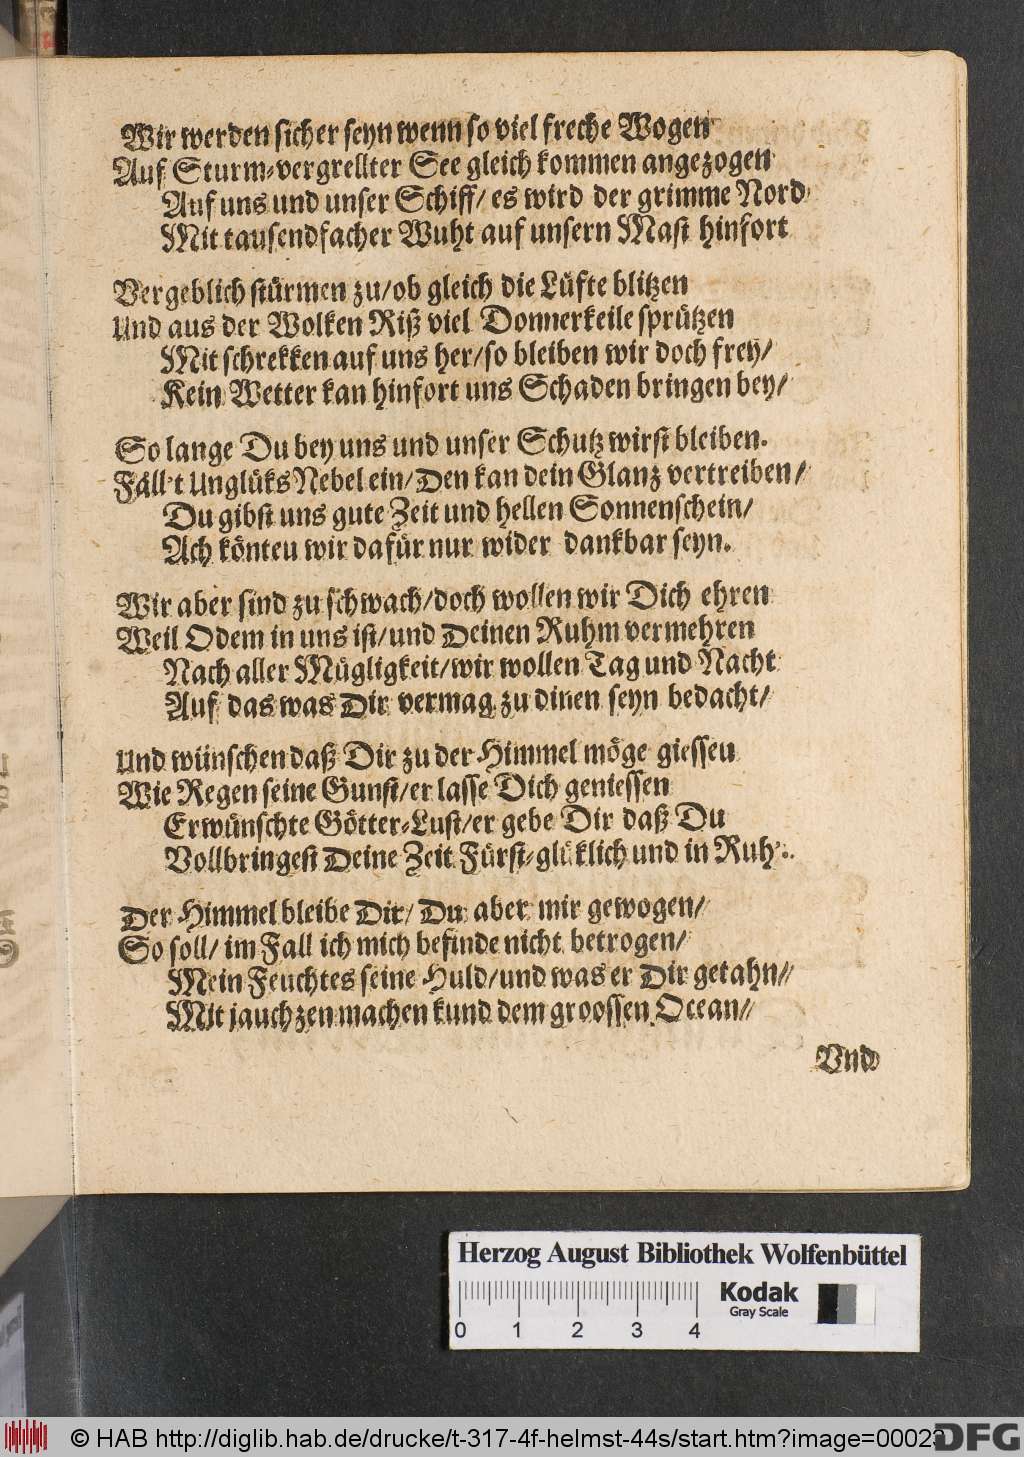 Wir werden sicher seyn wenn so viel freche Wogen
Auf Sturm-vergrellter See gleich kommen angezogen
Auf uns und unser Schiff/ es wird der grimme Nord
Mit tausendfacher Wuht auf unsern Mast hinfort
Vergeblich stürmen zu/ob gleich die Lüfte blitzen
Und aus der Wolken Riß viel Donnerkeile sprützen
Mit schrekken auf uns her/so bleiben wir doch frey/
Kein Wetter kan hinfort uns Schaden bringen bey/
So lange Du bey uns und unser Schutz wirst bleiben.
Fäll't Unglüks Nebel ein/Den kan dein Glanz vertreiben/
Du gibst uns gute Zeit und hellen Sonnenschein/
Ach könten wir dafür nur wider dankbar seyn.
Wir aber sind zu schwach/doch wollen wir Dich ehren
Weil Odem in uns ist/und Deinen Ruhm vermehren
Nach aller Mügligkeit/wir wollen Tag und Nacht
Auf das was Dir vermag zu dinen seyn bedacht/
Und wünschen daß Dir zu der Himmel möge giessen
Wie Regen seine Gunst/er lasse Dich geniessen
Erwünschte Götter-Lust/er gebe Dir daß Du
Vollbringest Deine Zeit Fürst-glüklich und in Ruh'.
Der Himmel bleibe Dir/ Du aber mir gewogen/
So soll/ im Fall ich mich befinde nicht betrogen/
Mein Feuchtes seine Huld/und was er Dir getahn/
Mit jauchzen machen kund dem groossen Ocean/
Vnd
Herzog August Bibliothek Wolfenbüttel
Kodak
Gray Scale
0 1 2 3 4
© HAB http://diglib.hab.de/drucke/t-317-4f-helmst-44s/start.htm?image=00023
DFG